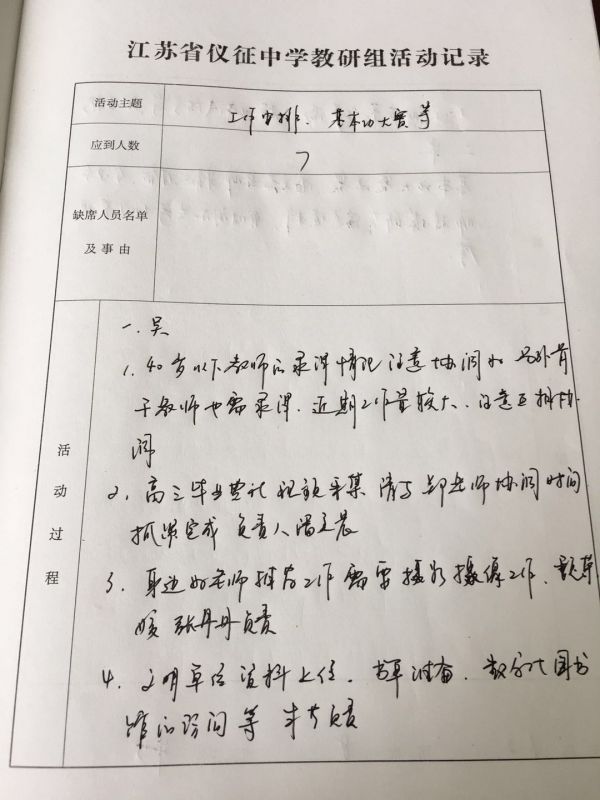 江苏省仪征中学教研组活动记录
活动主题 工作安排、基本功大赛等
应到人数 7
缺席人员名单
及事由
活动过程
一、吴
1、40岁以下教师的录课情况 注意协调和 另外骨
干教师也需录课、近期工作量较大、注意互相协
调
2、高三毕业典礼视频采集 请与郭老师协调时间
抓紧完成 负责人
3、身边好老师推荐工作 需要摄影摄像工作、
张丹丹负责
4、文明单位资料上传、书单准备、数字化图书
馆的访问等 负责